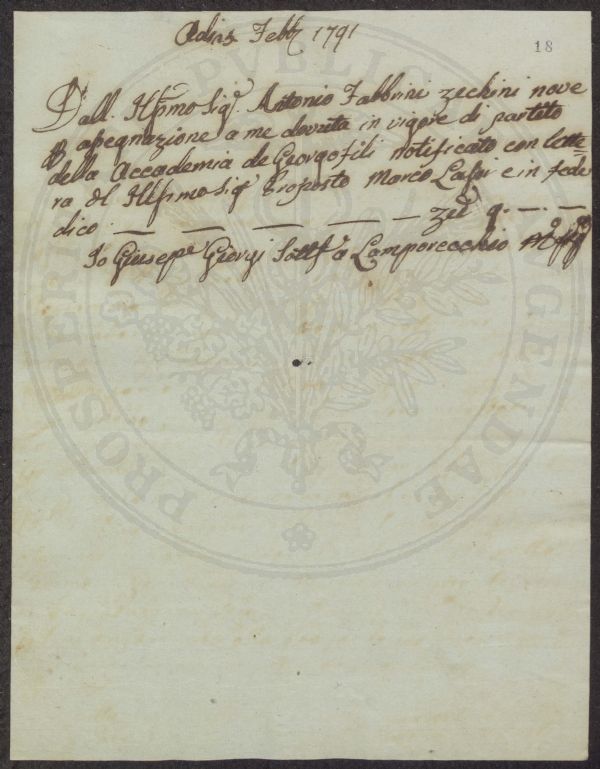 Febb 1791
18
Dall. Illmo Sig. Antonio Fabbrini zechini nove
assegnazione a me dovuta in vigore di partito
della Accademia de Georgofili notificato con lette
ra dl Illmo Sig Proposto Marco Lastri e in fede
dico — — — — — — zei 9. — . —
Io Giuseppe Giorgi a Lamporecchio
PROSPERITATI PUBLICAE AUGENDAE